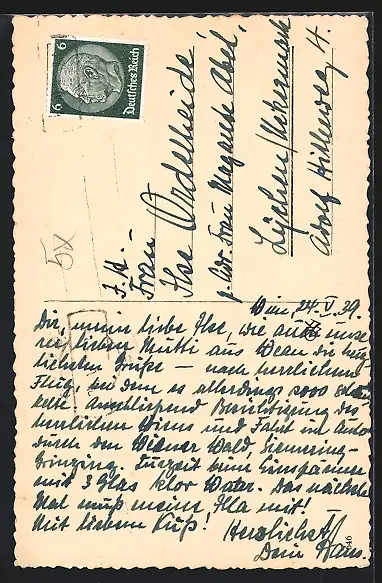 6
6
Deutsches Reich
5x
z. Zt. –
Frau
Ilse Ordelheide
Frau Abel,
Lychen/Uckermark
Adolf Hitlerweg 4.
Wien, 24. V. 39.
Dir, meine liebe Ilse, wie auch unse
rer lieben Mutti aus Wean die herz
lichsten Grüße – nach herrlichem
Flug, bei dem es allerdings 5000
Anschließend Besichtigung des
herrlichen Wiens und Fahrt im Auto
durch den Wiener Wald,
Grinzing. Zurzeit beim
mit 3 Glas klor Water. Das nächste
Mal muß meine Illa mit!
Mit liebem Kuß!
Herzlichst
Dein Hans.